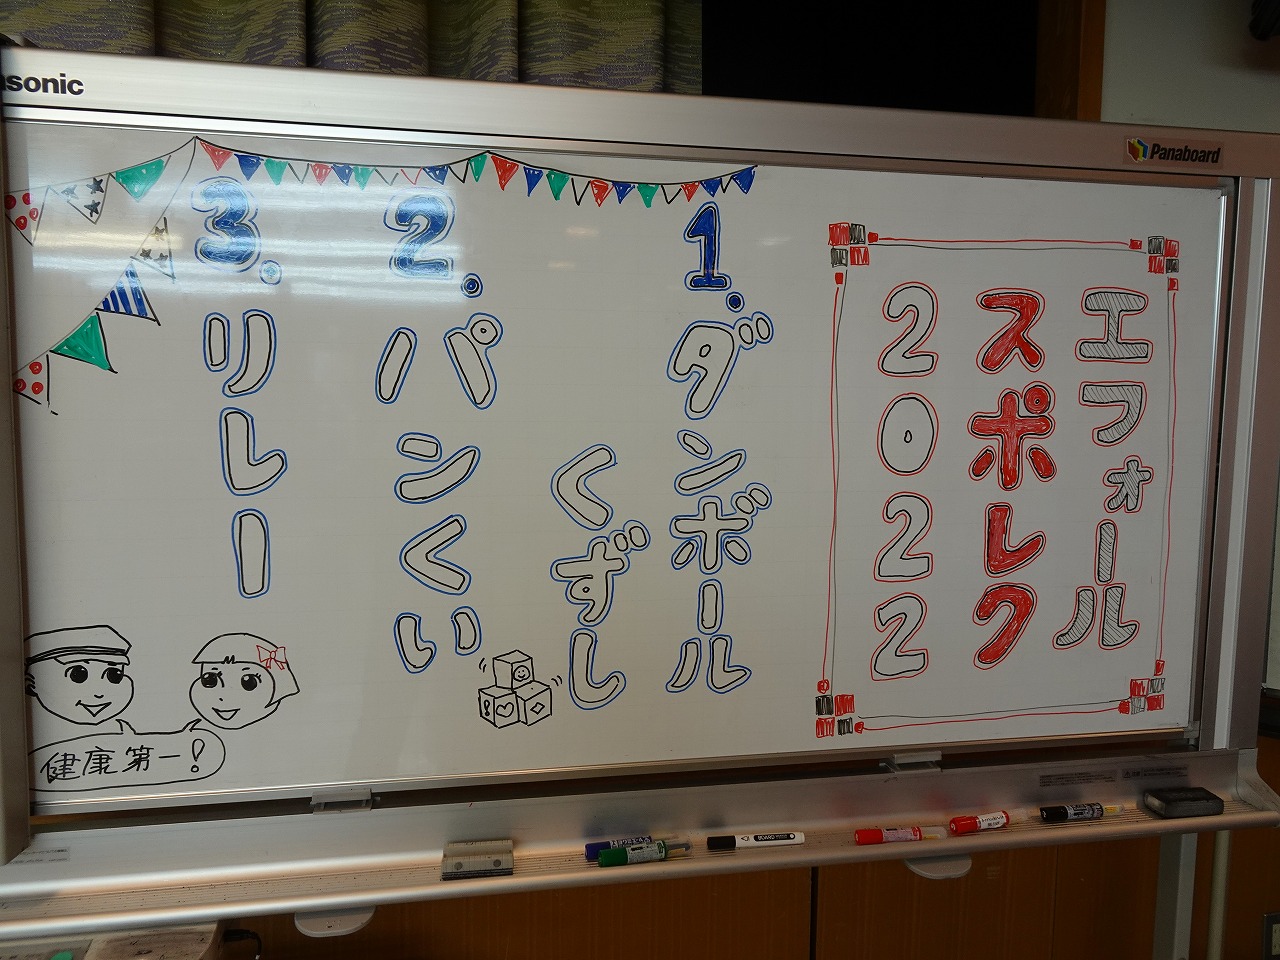 エフォール
スポレク
2022
1.ダンボール
くずし
2.パンくい
3.リレー
健康第一!
asonic
Panaboard